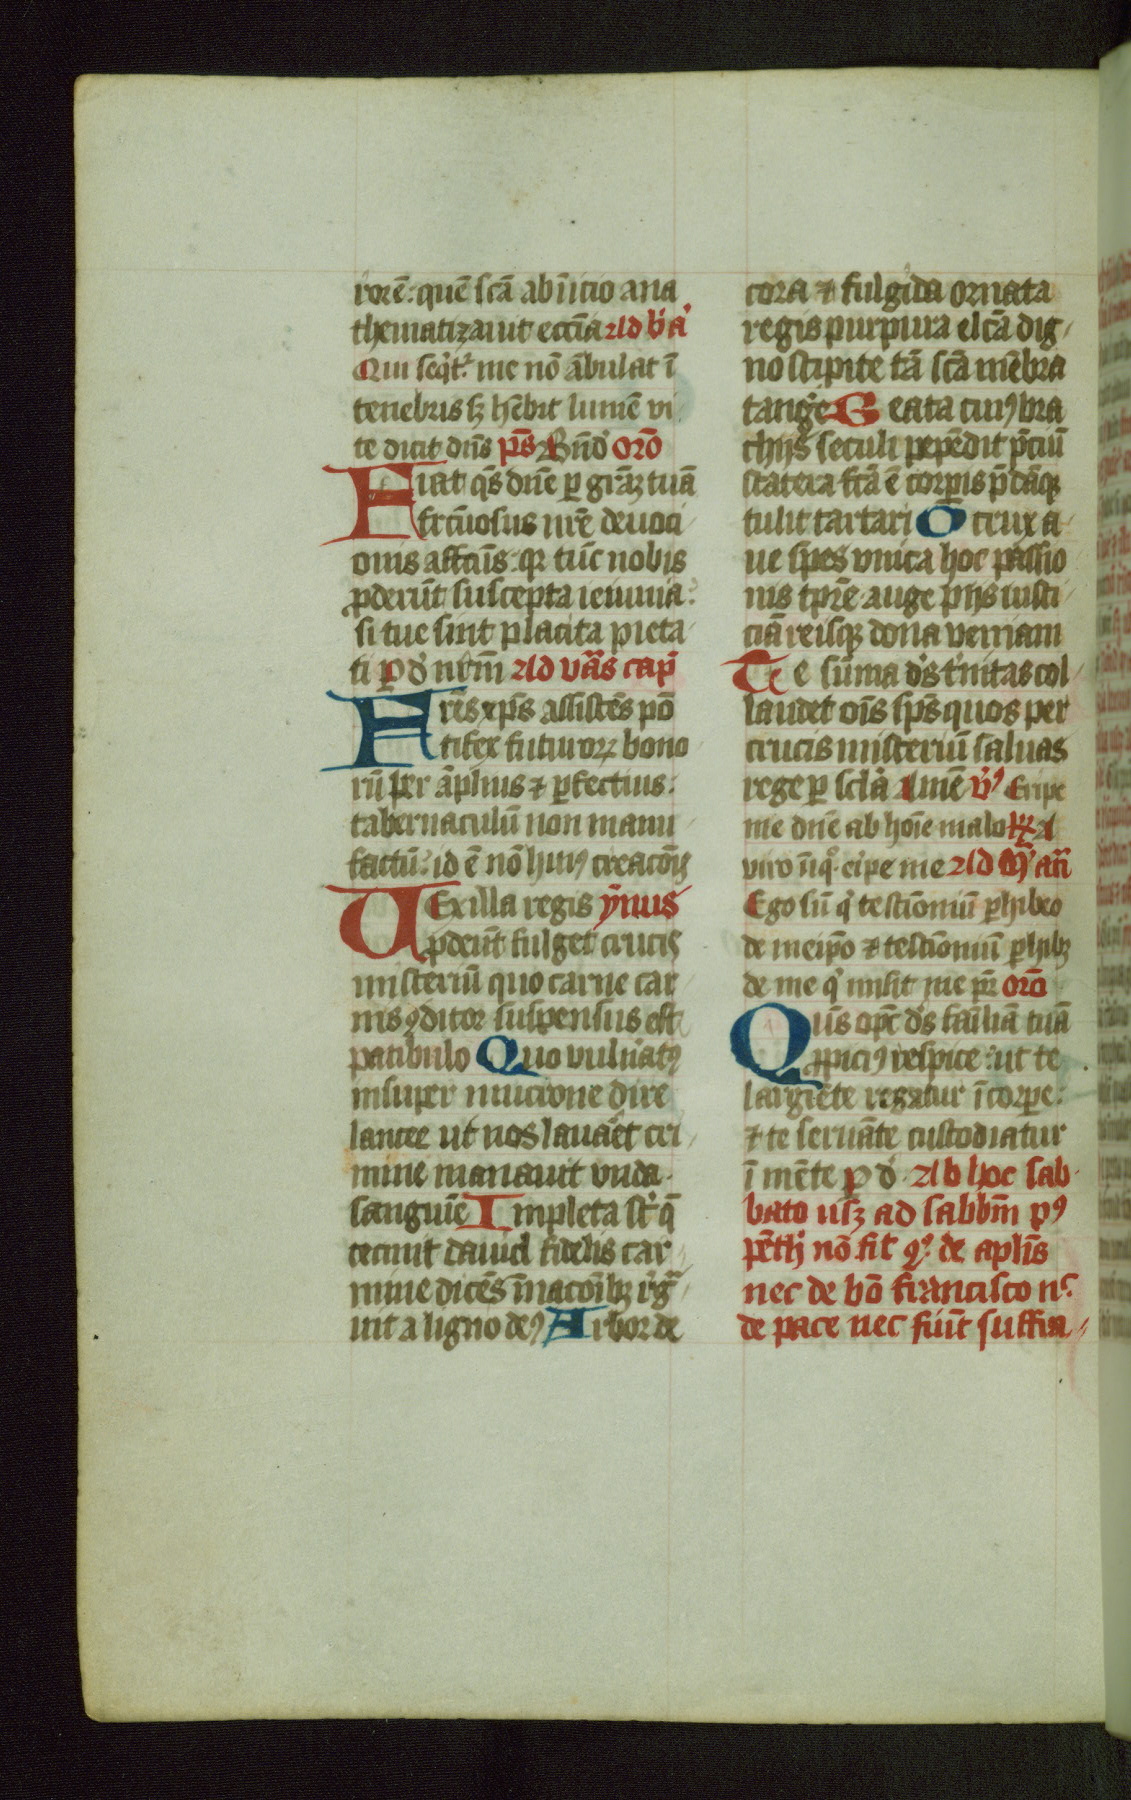 rorē: quē scā ab īicio ana
thematizauit eccīa ad b'a'
Qui seqt' me nō ābulat ī
tenebris sꝫ hēbit lumē vi
te dicit dn̄s ps̄ Bn̄d' orō
Fiat qs̄ dn̄e ꝑ grāꝫ tuā
frc̄uosus nr̄e deuoci
onis affcūs: qꝛ tūc nobis
ꝓderūt suscepta ieiunia:
si tue sint placita pieta
ti P d' nr̄m ad vās cap̄
Fr̄es xp̄s assistēs pō
tifex futuroꝝ bono
rū per āplius ⁊ ꝑfectius:
tabernaculū non manu
factū: id ē nō huiꝰ creacōis
UExilla regis ẏmus
ꝓdeūt fulget crucis
misteriū quo carne car
nis ꝯditor suspensus est
patibulo Quo vuln'atꝰ
insuper mucrone dire
lancee ut nos lauaret cri
mine manauit vnda
sanguīe Impleta st' q̄
cecinit dauid fidelis car
mine dicēs ī nacōibꝫ rḡ
uit a ligno deꝰ Arbor de
cora ⁊ fulgida ornata
regis purpura elcā dig
no stipite tā scā mēbra
tang'e Beata cuiꝰ bra
chijs seculi pepēdit p̄ciū
statera fcā ē corꝑis p̄dāqꝫ
tulit tartari O crux a
ue spes vnica hoc passio
nis tp̄re auge pijs iusti
ciā reisqꝫ dona veniam
Te sūma d's t'nitas col
laudet oīs sp̄s quos per
crucis misteriū saluas
rege ꝑ scl'a Amē v̄ꝰ Eripe
me dn̄e ab hoīe malo ꝶ A
viro īiqº eripe me ad m̄ an̄
Ego sū q' testīoniū ꝑhibeo
de meip̄o ⁊ testīoniū ꝑhibꝫ
de me q' misit me pr̄ orō
Qūs op̄c d's famīliā tuā
ꝓpiciꝰ respice: ut te
largiēte regatur ī corꝑe:
⁊ te seruāte custodiatur
ī mēte P d' Ab hoc sab
bato usqꝫ ad sabbm̄ pꝰ
pēth' nō fit 9º de aplīs
nec de bō francisco nc
de pace nec fiūt suffra